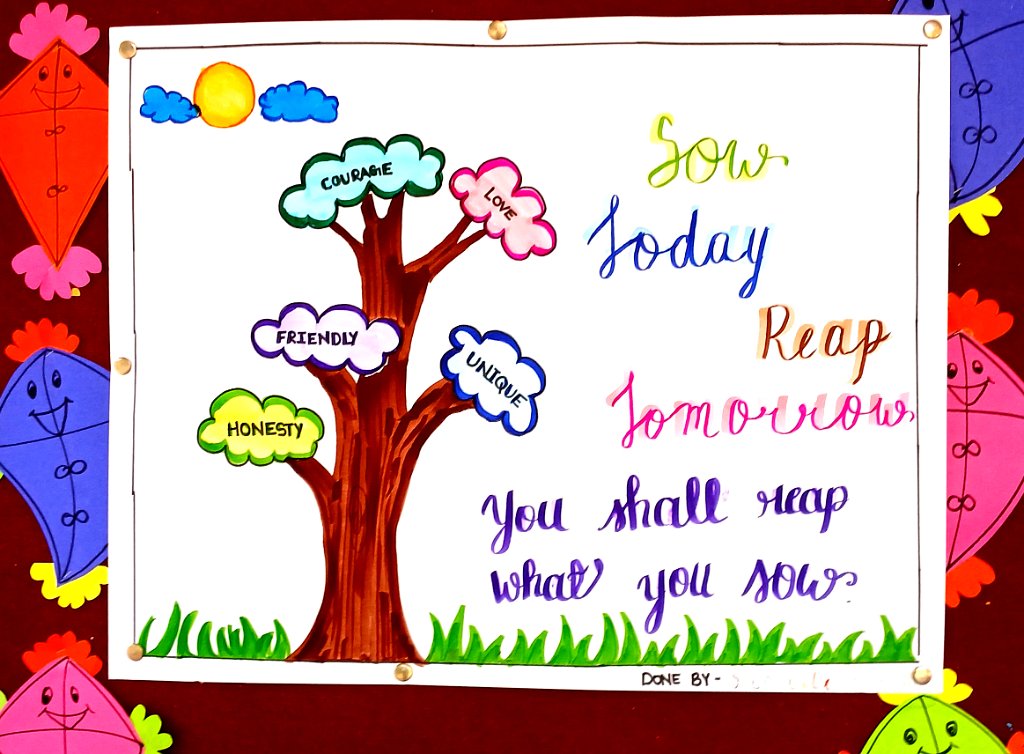 COURAGE
LOVE
FRIENDLY
UNIQUE
HONESTY
Sow
Today
Reap
Tomorrow
You shall reap
what you sow.
DONE BY -